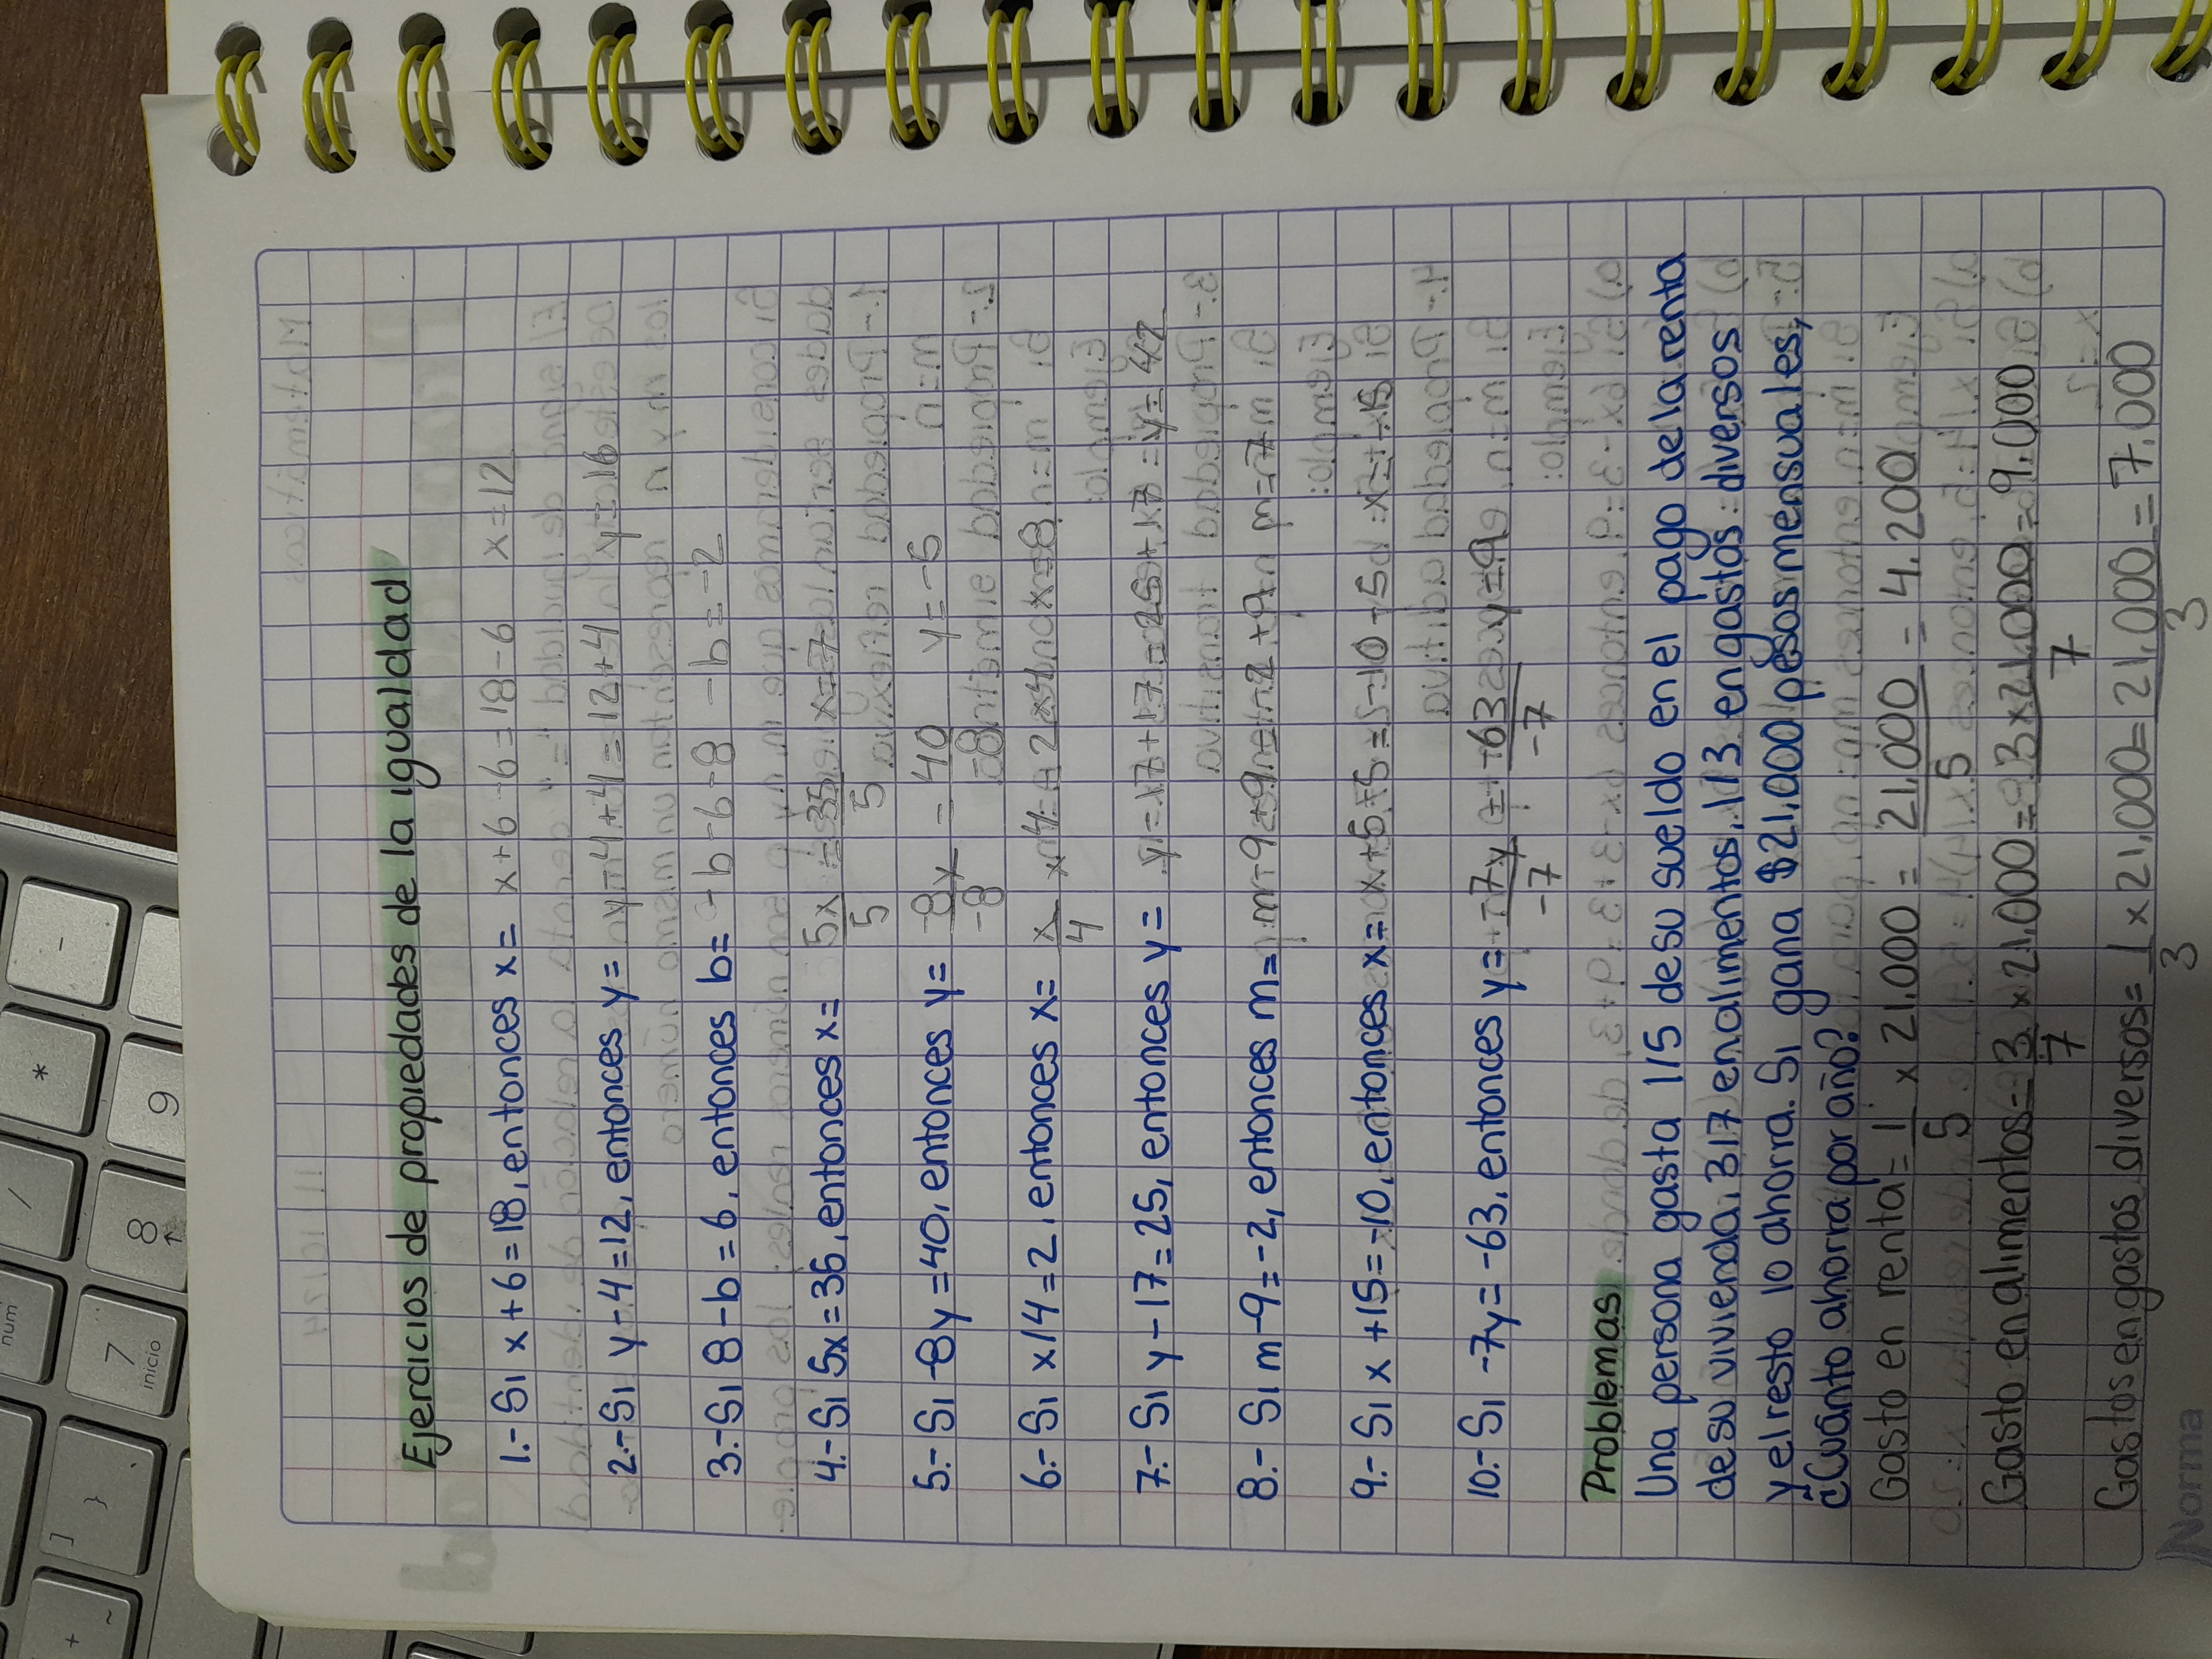 Ejercicios de propiedades de la igualdad
1.- Si x+6=18, entonces x= x+6-6=18-6 x=12
2.- Si y-4=12, entonces y= y-4+4=12+4 y=16
3.- Si 8-b=6, entonces b= -b=6-8 -b=-2
4.- Si 5x=35, entonces x= 5x = 35 x=7
5 5
5.- Si -8y=40, entonces y= -8y = 40 y=-5
-8 -8
6.- Si x/4=2, entonces x= x x4 = 2x4 x=8
4
7.- Si y-17=25, entonces y= y=-17+17=25+17 = y=42
8.- Si m-9=-2, entonces m= m-9+9=-2+9 m=7
9.- Si x+15=-10, entonces x= x+5-5=-10-5 x=-15
10.- Si -7y=-63, entonces y= -7y = -63 y=9
-7 -7
Problemas
Una persona gasta 1/5 de su sueldo en el pago de la renta
de su vivienda, 3/7 en alimentos, 1/3 en gastos diversos
y el resto lo ahorra. Si gana $21,000 pesos mensuales,
¿Cuánto ahorra por año?
Gasto en renta= 1 x 21.000 = 21.000 = 4.200
5 5
Gasto en alimentos= 3 x 21.000 = 3x21.000 = 9.000
7 7
Gastos en gastos diversos= 1 x 21.000= 21.000 = 7.000
3 3
Norma
num
7
Inicio
8
9
/
*
-
+
]
}
~